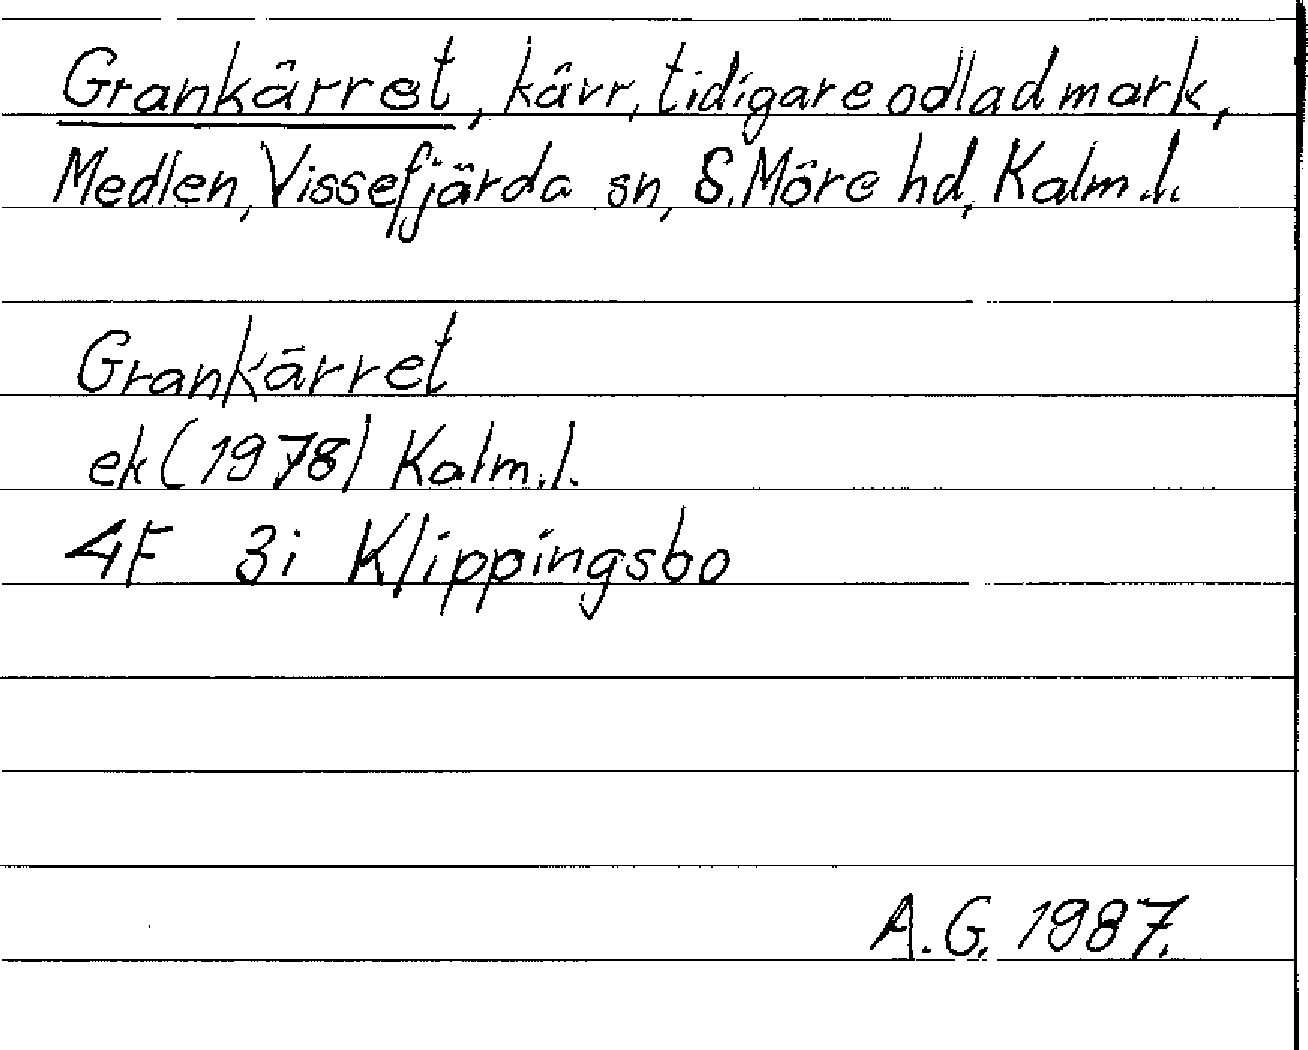 Grankärret, kärr, tidigare odlad mark,
Medlen, Vissefjärda sn, S. Möre hd, Kalm. l.
Grankärret
ek (1978) Kalm. l.
4F 3i Klippingsbo
A. G. 1987.